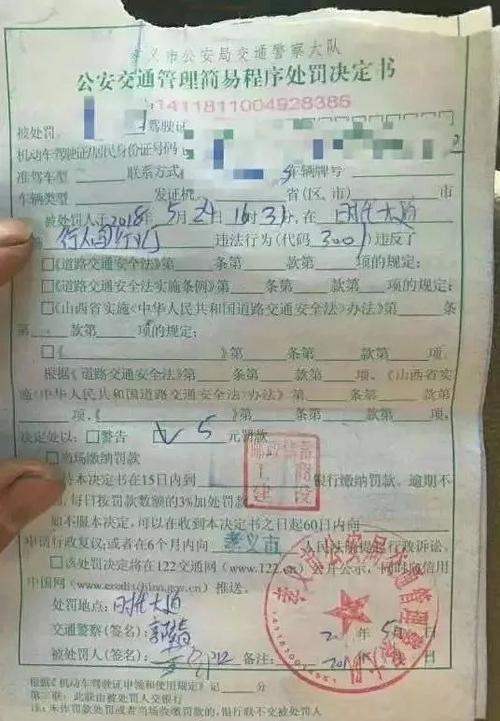 孝义市公安局交通警察大队
公安交通管理简易程序处罚决定书
1411811004928386
被处罚 驾驶证
机动车驾驶证/居民身份证号码
准驾车型 联系方式 车辆牌号
车辆类型 发证机 省(区、市) 市
被处罚人于2018年5月24日16时31分,在 时代大道
行人闯红灯 违法行为(代码 3001)违反了
□《道路交通安全法》第 条第 款第 项的规定;
□《道路交通安全法实施条例》第 条第 款第 项的规定;
□《山西省实施〈中华人民共和国道路交通安全法〉办法》第 条
第 款第 项的规定;
□《 》第 条第 款第 项。
根据《道路交通安全法》第 条第 款第 项、《山西省实
施〈中华人民共和国道路交通安全法〉办法》第 条第 款第
项、《 》第 条第 款第 项,
决定处以:□警告 √ 5 元罚款
□当场缴纳罚款
持本决定书在15日内到 银行缴纳罚款。逾期不
,每日按罚款数额的3%加处罚款
如不服本决定,可以在收到本决定书之日起60日内向
申请行政复议;或者在6个月内向 孝义市 人民法院提起行政诉讼。
□该处罚决定将在122交通网(www.122.cn)公开公示,同时向信用
中国网(www.creditchina.gov.cn)推送。
处罚地点:时代大道
交通警察(签名):
被处罚人(签名): 备注:
年5月 日
根据《机动车驾驶证申领和使用规定》记 分
第二联:此联由被处罚人交银行
注:未作罚款处罚或者当场收缴罚款的,银行联不交被处罚人